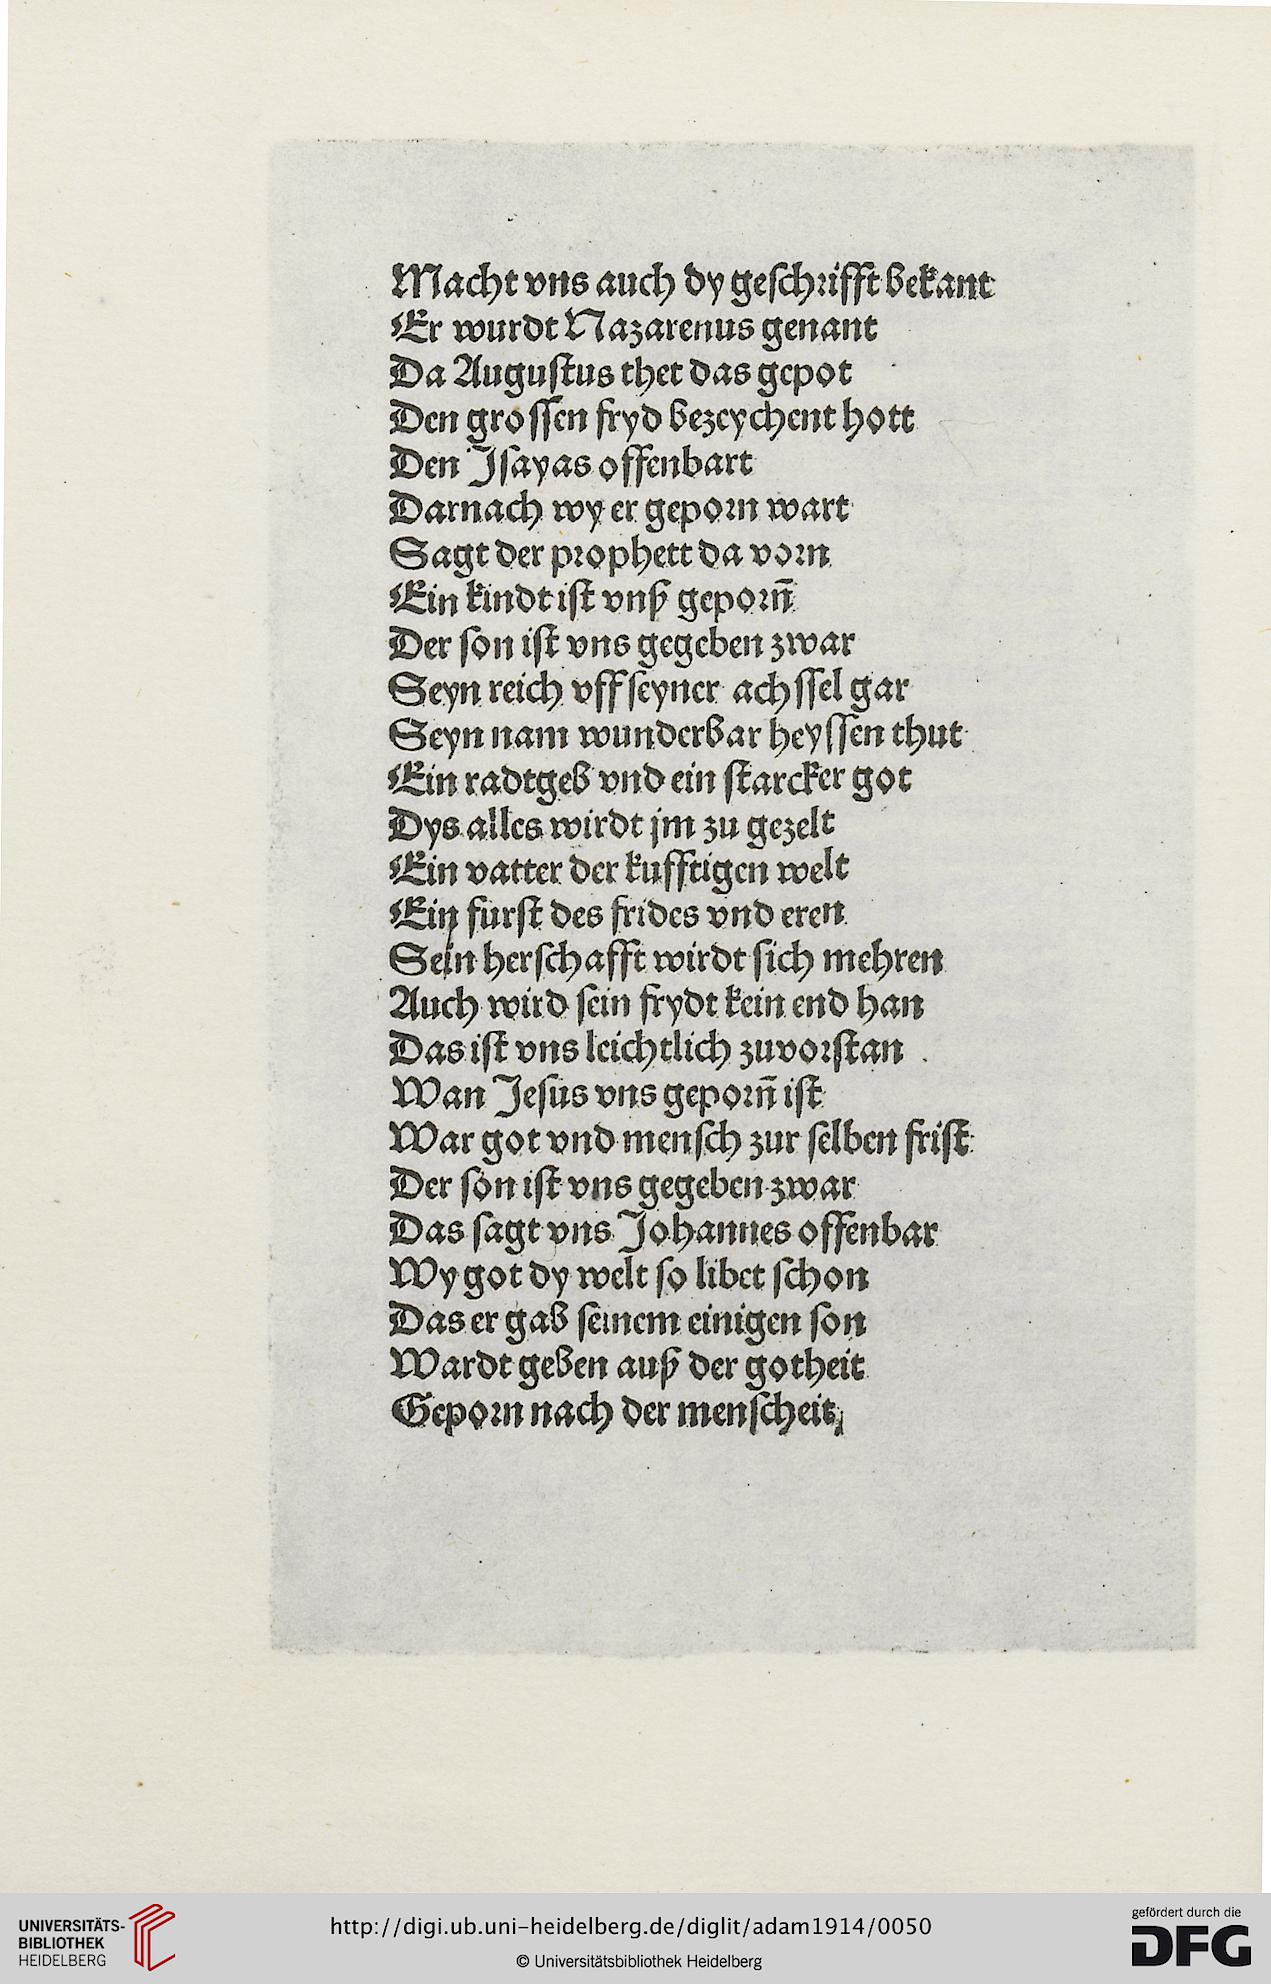 Macht vns auch dy geſchrifft bekant
Er wurdt Nazarenus genant
Da Auguſtus thet das gepot
Den groſſen fryd bezeychent hott
Den Jſayas offenbart
Darnach wy er geporn wart
Sagt der prophett da vorn
Ein kindt iſt vnß geporn̄
Der ſon iſt vns gegeben zwar
Seyn reich vff ſeyner achſſel gar
Seyn nam wunderbar heyſſen thut
Ein radtgeb vnd ein ſtarcker got
Dys alles wirdt jm zu gezelt
Ein vatter der kufftigen welt
Ein furſt des frides vnd eren
Sein herſchafft wirdt ſich mehren
Auch wird ſein frydt kein end han
Das iſt vns leichtlich zuvorſtan
Wan Jeſus vns geporn̄ iſt
War got vnd menſch zur ſelben friſt
Der ſon iſt vns gegeben zwar
Das ſagt vns Johannes offenbar
Wy got dy welt ſo libet ſchon
Das er gab ſeinem einigen ſon
Wardt geben auß der gotheit
Geporn nach der menſcheit
UNIVERSITÄTS-
BIBLIOTHEK
HEIDELBERG
http://digi.ub.uni-heidelberg.de/diglit/adam1914/0050
© Universitätsbibliothek Heidelberg
gefördert durch die
DFG